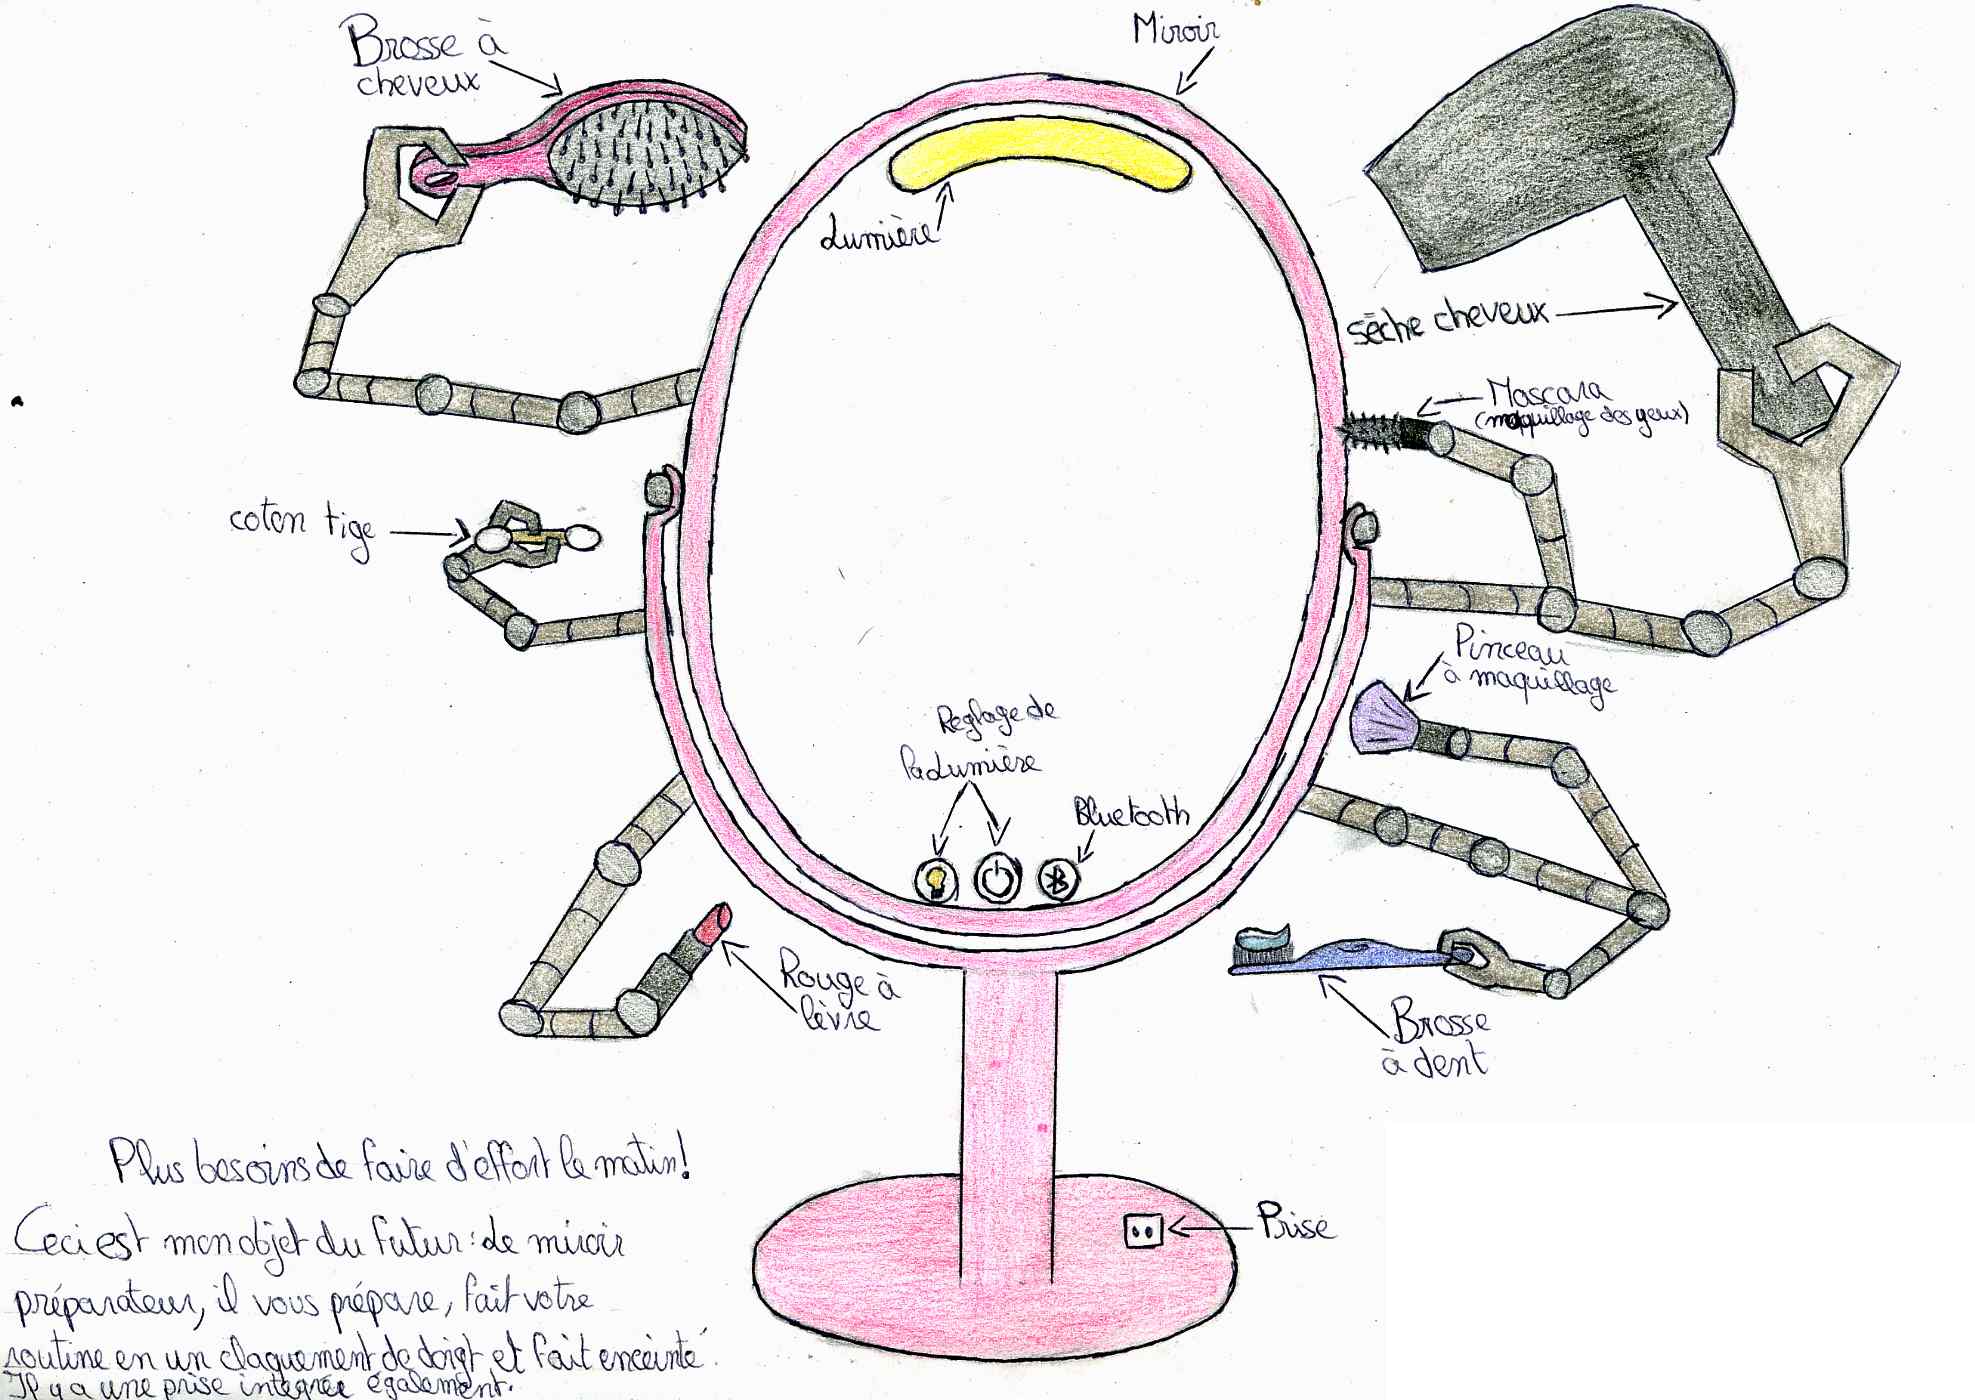 Brosse à
cheveux
Miroir
Lumière
sèche cheveux
Mascara
(maquillage des yeux)
coton tige
Pinceau
à maquillage
Réglage de
la Lumière
Bluetooth
Rouge à
lèvre
Brosse
à dent
Prise
Plus besoins de faire d'effort le matin!
Ceci est mon objet du futur: le miroir
préparateur, il vous prépare, fait votre
routine en un claquement de doigt et fait enceinté.
Il y a une prise intégrée également.